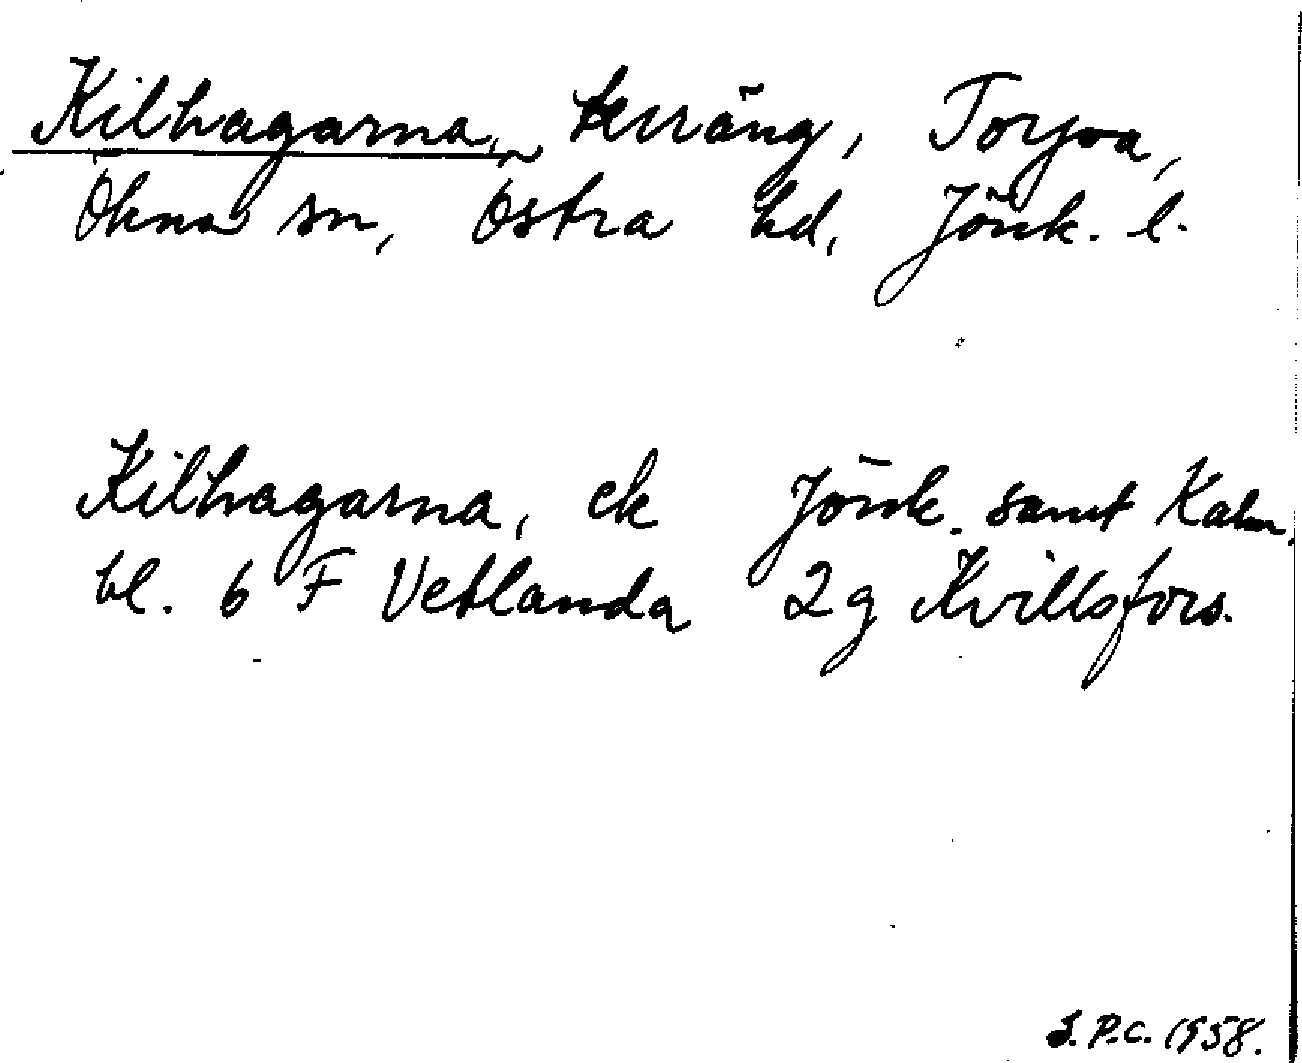 Kilhagarna, terräng, Toryva,
Ökna sn, Östra hd, Jönk. l.
Kilhagarna, ek Jönk. samt Kalm.
bl. 6 F Vetlanda 2g Kvillsfors.
S.P.C. 1958.